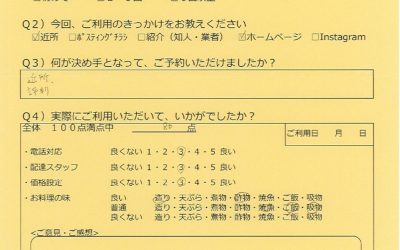 Q2) 今回、ご利用のきっかけをお教えください
☑近所 □ポスティングチラシ □紹介（知人・業者） ☑ホームページ □Instagram
Q3) 何が決め手となって、ご予約いただけましたか？
近所、
評判
Q4) 実際にご利用いただいて、いかがでしたか？
全体 100点満点中 80 点
ご利用日 月 日
・電話対応 良くない 1・2・3・4・5 良い
・配達スタッフ 良くない 1・2・3・4・5 良い
・価格設定 良くない 1・2・3・4・5 良い
・お料理の味 良い 造り・天ぷら・煮物・酢物・焼魚・ご飯・吸物
普通 造り・天ぷら・煮物・酢物・焼魚・ご飯・吸物
良くない 造り・天ぷら・煮物・酢物・焼魚・ご飯・吸物
＜ご意見・ご感想＞